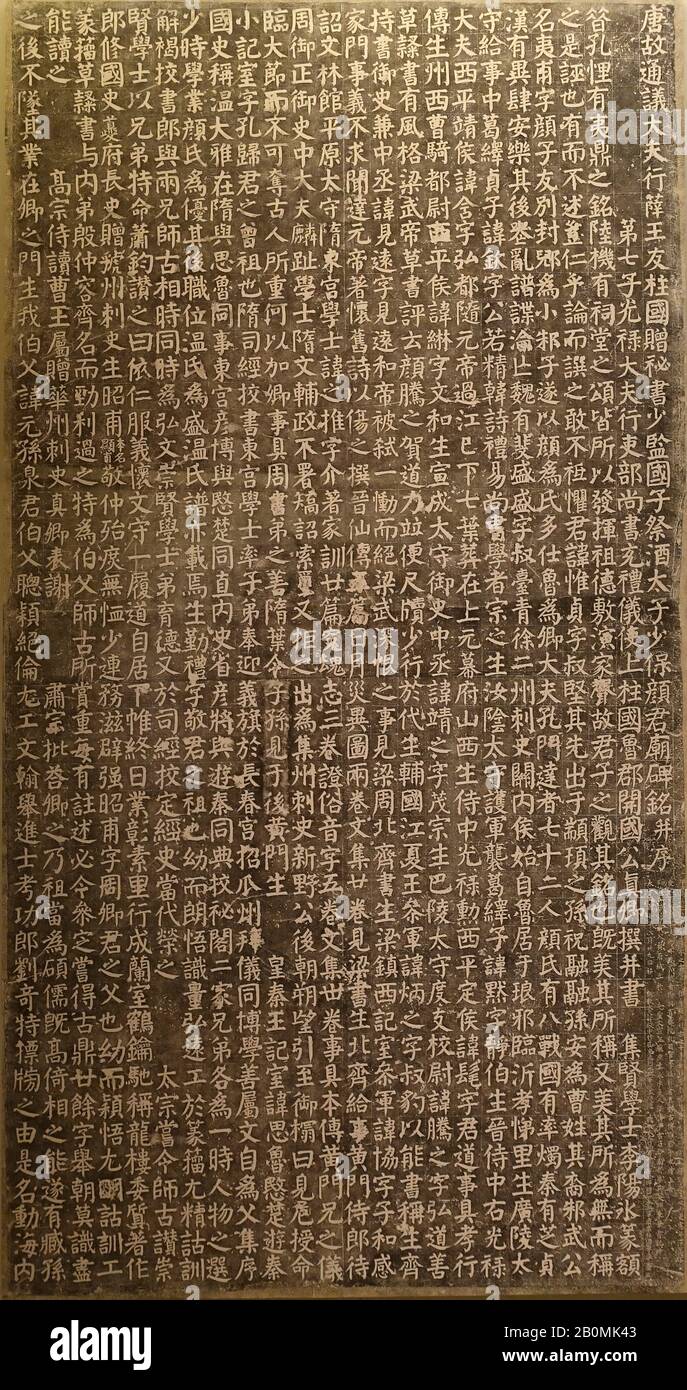 唐故通議大夫行薛王友柱國贈祕書少監國子祭酒太子少保顏君廟碑銘并序
第七子光祿大夫行吏部尚書充禮儀使上柱國魯郡開國公真卿撰并書 集賢學士李陽冰篆額
昔孔悝有夷鼎之銘陸機有祠堂之頌皆所以發揮祖德敷演家聲故君子之觀其銘也旣美其所稱又美其所為無而稱
之是誣也有而不述豈仁乎論而譔之敢不祗懼君諱惟貞字叔堅其先出于顓頊之孫祝融融孫安為曹姓其裔邾武公
名夷甫字顏子友別封郳為小邾子遂以顏為氏多仕魯為卿大夫孔門達者七十二人顏氏有八戰國有率燭秦有芝貞
漢有異肆安樂其後喪亂譜諜淪亡魏有斐盛盛字叔臺青徐二州刺史關內侯始自魯居于琅邪臨沂孝悌里生廣陵太
守給事中葛繹貞子諱欽字公若精韓詩禮易尚書學者宗之生汝陰太守護軍襲葛繹子諱默字靜伯生晉侍中右光祿
大夫西平靖侯諱含字弘都隨元帝過江已下七葉葬在上元幕府山西生侍中光祿勳西平定侯諱髦字君道事具孝行
傳生州西曹騎都尉西平侯諱綝字文和生宣城太守御史中丞諱靖之字茂宗生巴陵太守度支校尉諱騰之字弘道善
草隸書有風格梁武帝草書評云顏騰之賀道力並便尺牘少行於代生輔國江夏王參軍諱炳之字叔豹以能書稱生齊
持書御史兼中丞諱見遠字見遠和帝被弒一慟而絕梁武深恨之事見梁周北齊書生梁鎮西記室參軍諱協字子和感
家門事義不求聞達元帝著懷舊詩以傷之撰晉仙傳五篇日月災異圖兩卷文集廿卷見梁書生北齊給事黃門侍郎待
詔文林館平原太守隋東宮學士諱之推字介著家訓廿篇冤魂志三卷證俗音字五卷文集卅卷事具本傳黃門兄之儀
周御正御史中大夫麟趾學士隋文輔政不署矯詔索璽又拒之出為集州刺史新野公後朝朔望引至御榻曰見危授命
臨大節而不可奪古人所重何以加卿事具周書弟之善隋葉令子孫見于後黃門生 皇秦王記室諱思魯愍楚遊秦
小記室字孔歸君之曾祖也隋司經挍書東宮學士率子弟奉迎義旗於長春宮招瓜州拜儀同博學善屬文自為父集序
國史稱溫大雅在隋與思魯同事東宮彥博與愍楚同直內史省彥將與遊秦同典挍祕閣二家兄弟各為一時人物之選
少時學業顏氏為優其後職位溫氏為盛溫氏譜亦載焉生勤禮字敬君之祖也幼而朗悟識量弘遠工於篆籀尤精詁訓
解褐挍書郎與兩兄師古相時同時為弘文崇賢學士弟育德又於司經挍定經史當代榮之 太宗嘗令師古讚崇
賢學士以兄弟特命蕭鈞讚之曰依仁服義懷文守一履道自居下帷終日業彰素里行成蘭室鶴鑰馳稱龍樓委質著作
郎修國史夔府長史贈虢州刺史生昭甫本名顯甫敬仲殆庶無恤少連務滋辟强昭甫字周卿君之父也幼而穎悟尤明詁訓工
篆籀草隸書與內弟殷仲容齊名而勁利過之特為伯父師古所賞重每有註述必令參定嘗得古鼎廿餘字舉朝莫識盡
能讀之 高宗侍讀曹王屬贈華州刺史真卿表謝 肅宗批荅卿之乃祖當為碩儒旣高倚相之能遂有臧孫
之後不墜其業在卿之門生我伯父諱元孫泉君伯父聰穎絕倫尤工文翰舉進士考功郎劉奇特摽牓之由是名動海內
alamy
Image ID: 2B0MK43
www.alamy.com